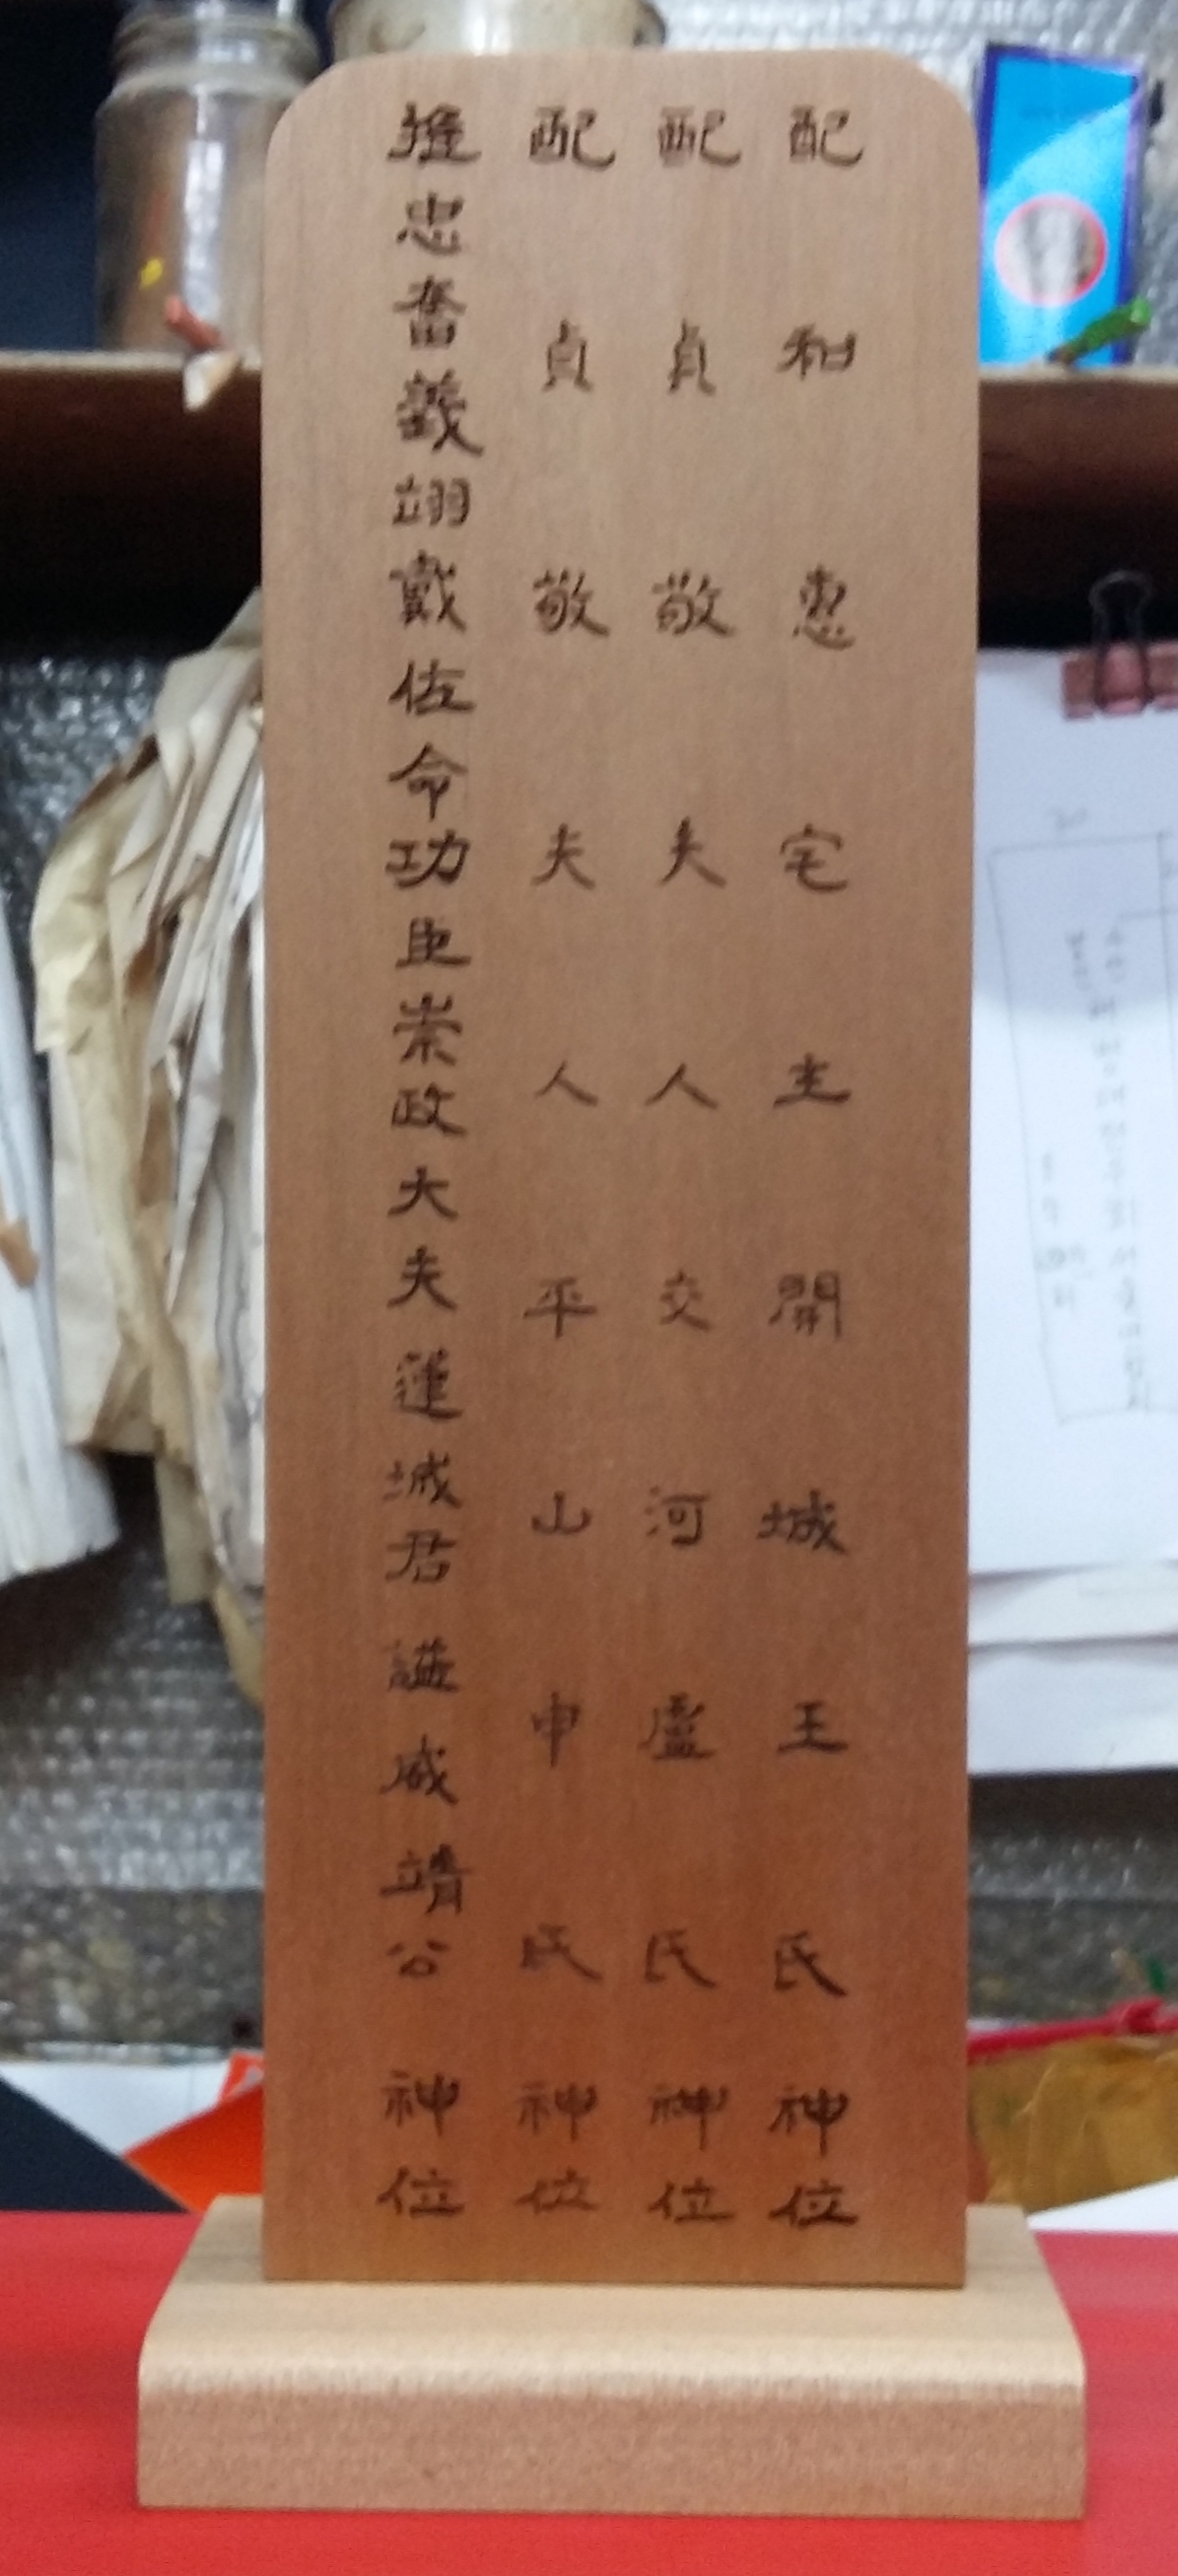 推忠奮義翊戴佐命功臣崇政大夫蓮城君謚威靖公神位
配貞敬夫人平山申氏神位
配貞敬夫人交河盧氏神位
配和惠宅主開城王氏神位